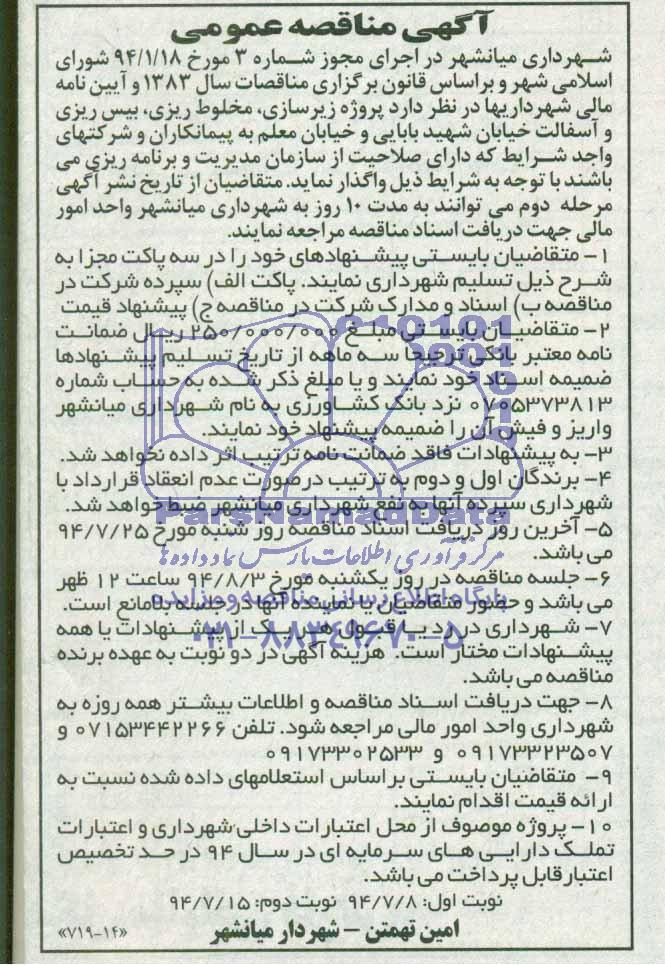 آگهی مناقصه عمومی
شهرداری میانشهر در اجرای مجوز شماره ۳ مورخ ۹۴/۱/۱۸ شورای
اسلامی شهر و براساس قانون برگزاری مناقصات سال ۱۳۸۳ و آیین نامه
مالی شهرداریها در نظر دارد پروژه زیرسازی، مخلوط ریزی، بیس ریزی
و آسفالت خیابان شهید بابایی و خیابان معلم به پیمانکاران و شرکتهای
واجد شرایط که دارای صلاحیت از سازمان مدیریت و برنامه ریزی می
باشند با توجه به شرایط ذیل واگذار نماید. متقاضیان از تاریخ نشر آگهی
مرحله دوم می توانند به مدت ۱۰ روز به شهرداری میانشهر واحد امور
مالی جهت دریافت اسناد مناقصه مراجعه نمایند.
۱- متقاضیان بایستی پیشنهادهای خود را در سه پاکت مجزا به
شرح ذیل تسلیم شهرداری نمایند. پاکت الف) سپرده شرکت در
مناقصه ب) اسناد و مدارک شرکت در مناقصه ج) پیشنهاد قیمت
۲- متقاضیان بایستی مبلغ ۲۵۰/۰۰۰/۰۰۰ ریال ضمانت
نامه معتبر بانکی ترجیحا سه ماهه از تاریخ تسلیم پیشنهادها
ضمیمه اسناد خود نمایند و یا مبلغ ذکر شده به حساب شماره
۰۷۰۵۳۷۳۸۱۳ نزد بانک کشاورزی به نام شهرداری میانشهر
واریز و فیش آن را ضمیمه پیشنهاد خود نمایند.
۳- به پیشنهادات فاقد ضمانت نامه ترتیب اثر داده نخواهد شد.
۴- برندگان اول و دوم به ترتیب درصورت عدم انعقاد قرارداد با
شهرداری سپرده آنها به نفع شهرداری میانشهر ضبط خواهد شد.
ParsNamadData
۵- آخرین روز دریافت اسناد مناقصه روز شنبه مورخ ۹۴/۷/۲۵
می باشد.
مرکز فرآوری اطلاعات پارس نماد داده ها
۶- جلسه مناقصه در روز یکشنبه مورخ ۹۴/۸/۳ ساعت ۱۲ ظهر
پایگاه اطلاع رسانی مناقصه و مزایده
می باشد و حضور متقاضیان یا نماینده آنها در جلسه بلامانع است.
۷- شهرداری در رد یا قبول هر یک از پیشنهادات یا همه
۰۲۱-۸۸۳۴۹۶۷۰-۵
پیشنهادات مختار است. هزینه آگهی در دو نوبت به عهده برنده
مناقصه می باشد.
۸- جهت دریافت اسناد مناقصه و اطلاعات بیشتر همه روزه به
شهرداری واحد امور مالی مراجعه شود. تلفن ۰۷۱۵۳۴۴۲۲۶۶ و
۰۹۱۷۳۳۲۳۵۰۷ و ۰۹۱۷۳۳۰۲۵۳۳
۹- متقاضیان بایستی براساس استعلامهای داده شده نسبت به
ارائه قیمت اقدام نمایند.
۱۰- پروژه موصوف از محل اعتبارات داخلی شهرداری و اعتبارات
تملک دارایی های سرمایه ای در سال ۹۴ در حد تخصیص
اعتبار قابل پرداخت می باشد.
نوبت اول: ۹۴/۷/۸ نوبت دوم: ۹۴/۷/۱۵
امین تهمتن - شهردار میانشهر
«۷۱۹-۱۴»